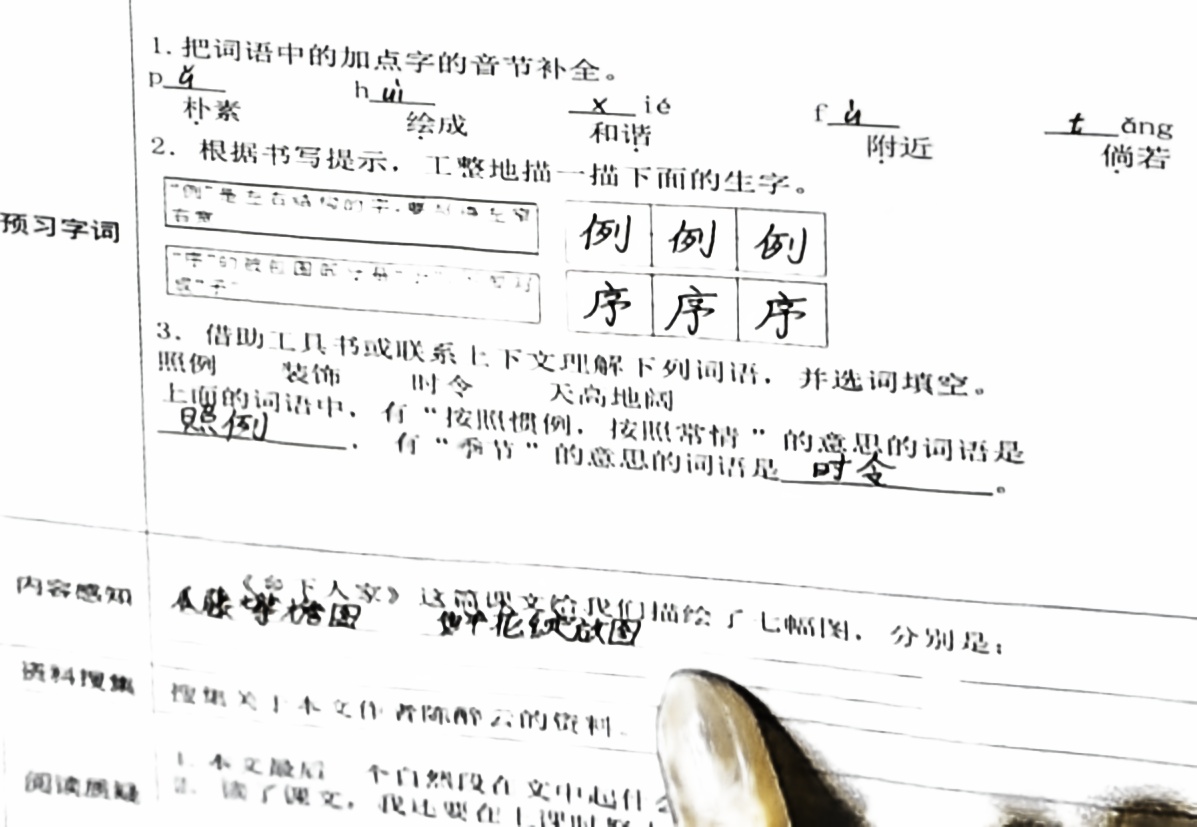 1. 把词语中的加点字的音节补全。
pǔ huì xié fù tǎng
朴素 绘成 和谐 附近 倘若
2. 根据书写提示，工整地描一描下面的生字。
预习字词
"例"是左右结构的字，要
右宽
例 例 例
序 序 序
3. 借助工具书或联系上下文理解下列词语，并选词填空。
照例 装饰 时令 天高地阔
上面的词语中，有"按照惯例，按照常情"的意思的词语是
照例，有"季节"的意思的词语是时令。
内容感知
《乡下人家》这篇课文给我们描绘了七幅图，分别是：
图 鲜花绽放图
资料搜集
搜集关于本文作者陈醉云的资料。
阅读质疑
1. 本文最后一个自然段在文中起什
2. 读了课文，我还要在上课时